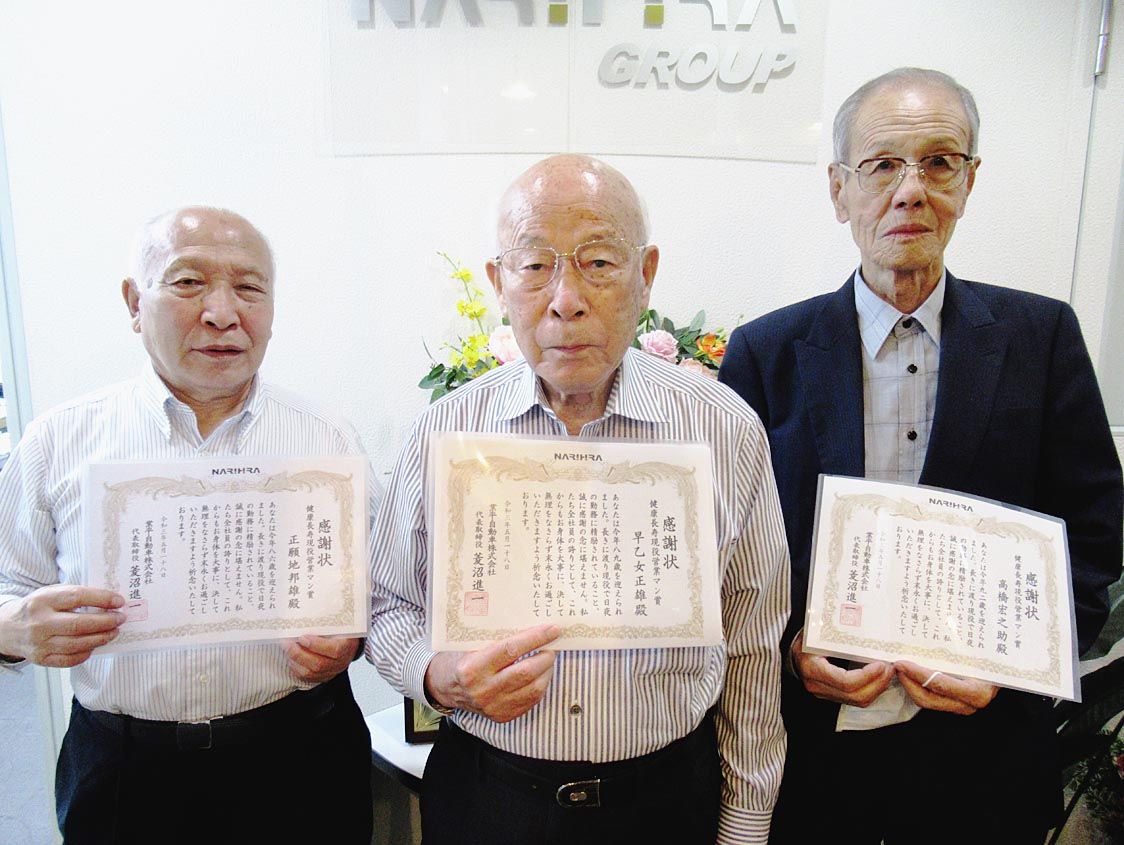 NARIHRA
GROUP
NARIHRA
感謝状
健康長寿現役営業マン賞
正願地邦雄殿
あなたは今年八六歳を迎えられ
ました。長きに渡り現役で日夜
の勤務に精励されていること、
誠に感謝の念に堪えません。私
たち全社員の誇りとして、これ
からもお身体を大事に、決して
無理をなさらず末永くお過ごし
いただきますよう祈念いたして
おります。
業平自動車株式会社
代表取締役 菱沼進一
NARIHRA
感謝状
健康長寿現役営業マン賞
早乙女正雄殿
あなたは今年八九歳を迎えられ
ました。長きに渡り現役で日夜
の勤務に精励されていること、
誠に感謝の念に堪えません。私
たち全社員の誇りとして、これ
からもお身体を大事に、決して
無理をなさらず末永くお過ごし
いただきますよう祈念いたして
おります。
業平自動車株式会社
代表取締役 菱沼進一
NARIHRA
感謝状
健康長寿現役営業マン賞
高橋宏之助殿
あなたは今年九二歳を迎えられ
ました。長きに渡り現役で日夜
の勤務に精励されていること、
誠に感謝の念に堪えません。私
たち全社員の誇りとして、これ
からもお身体を大事に、決して
無理をなさらず末永くお過ごし
いただきますよう祈念いたして
おります。
業平自動車株式会社
代表取締役 菱沼進一